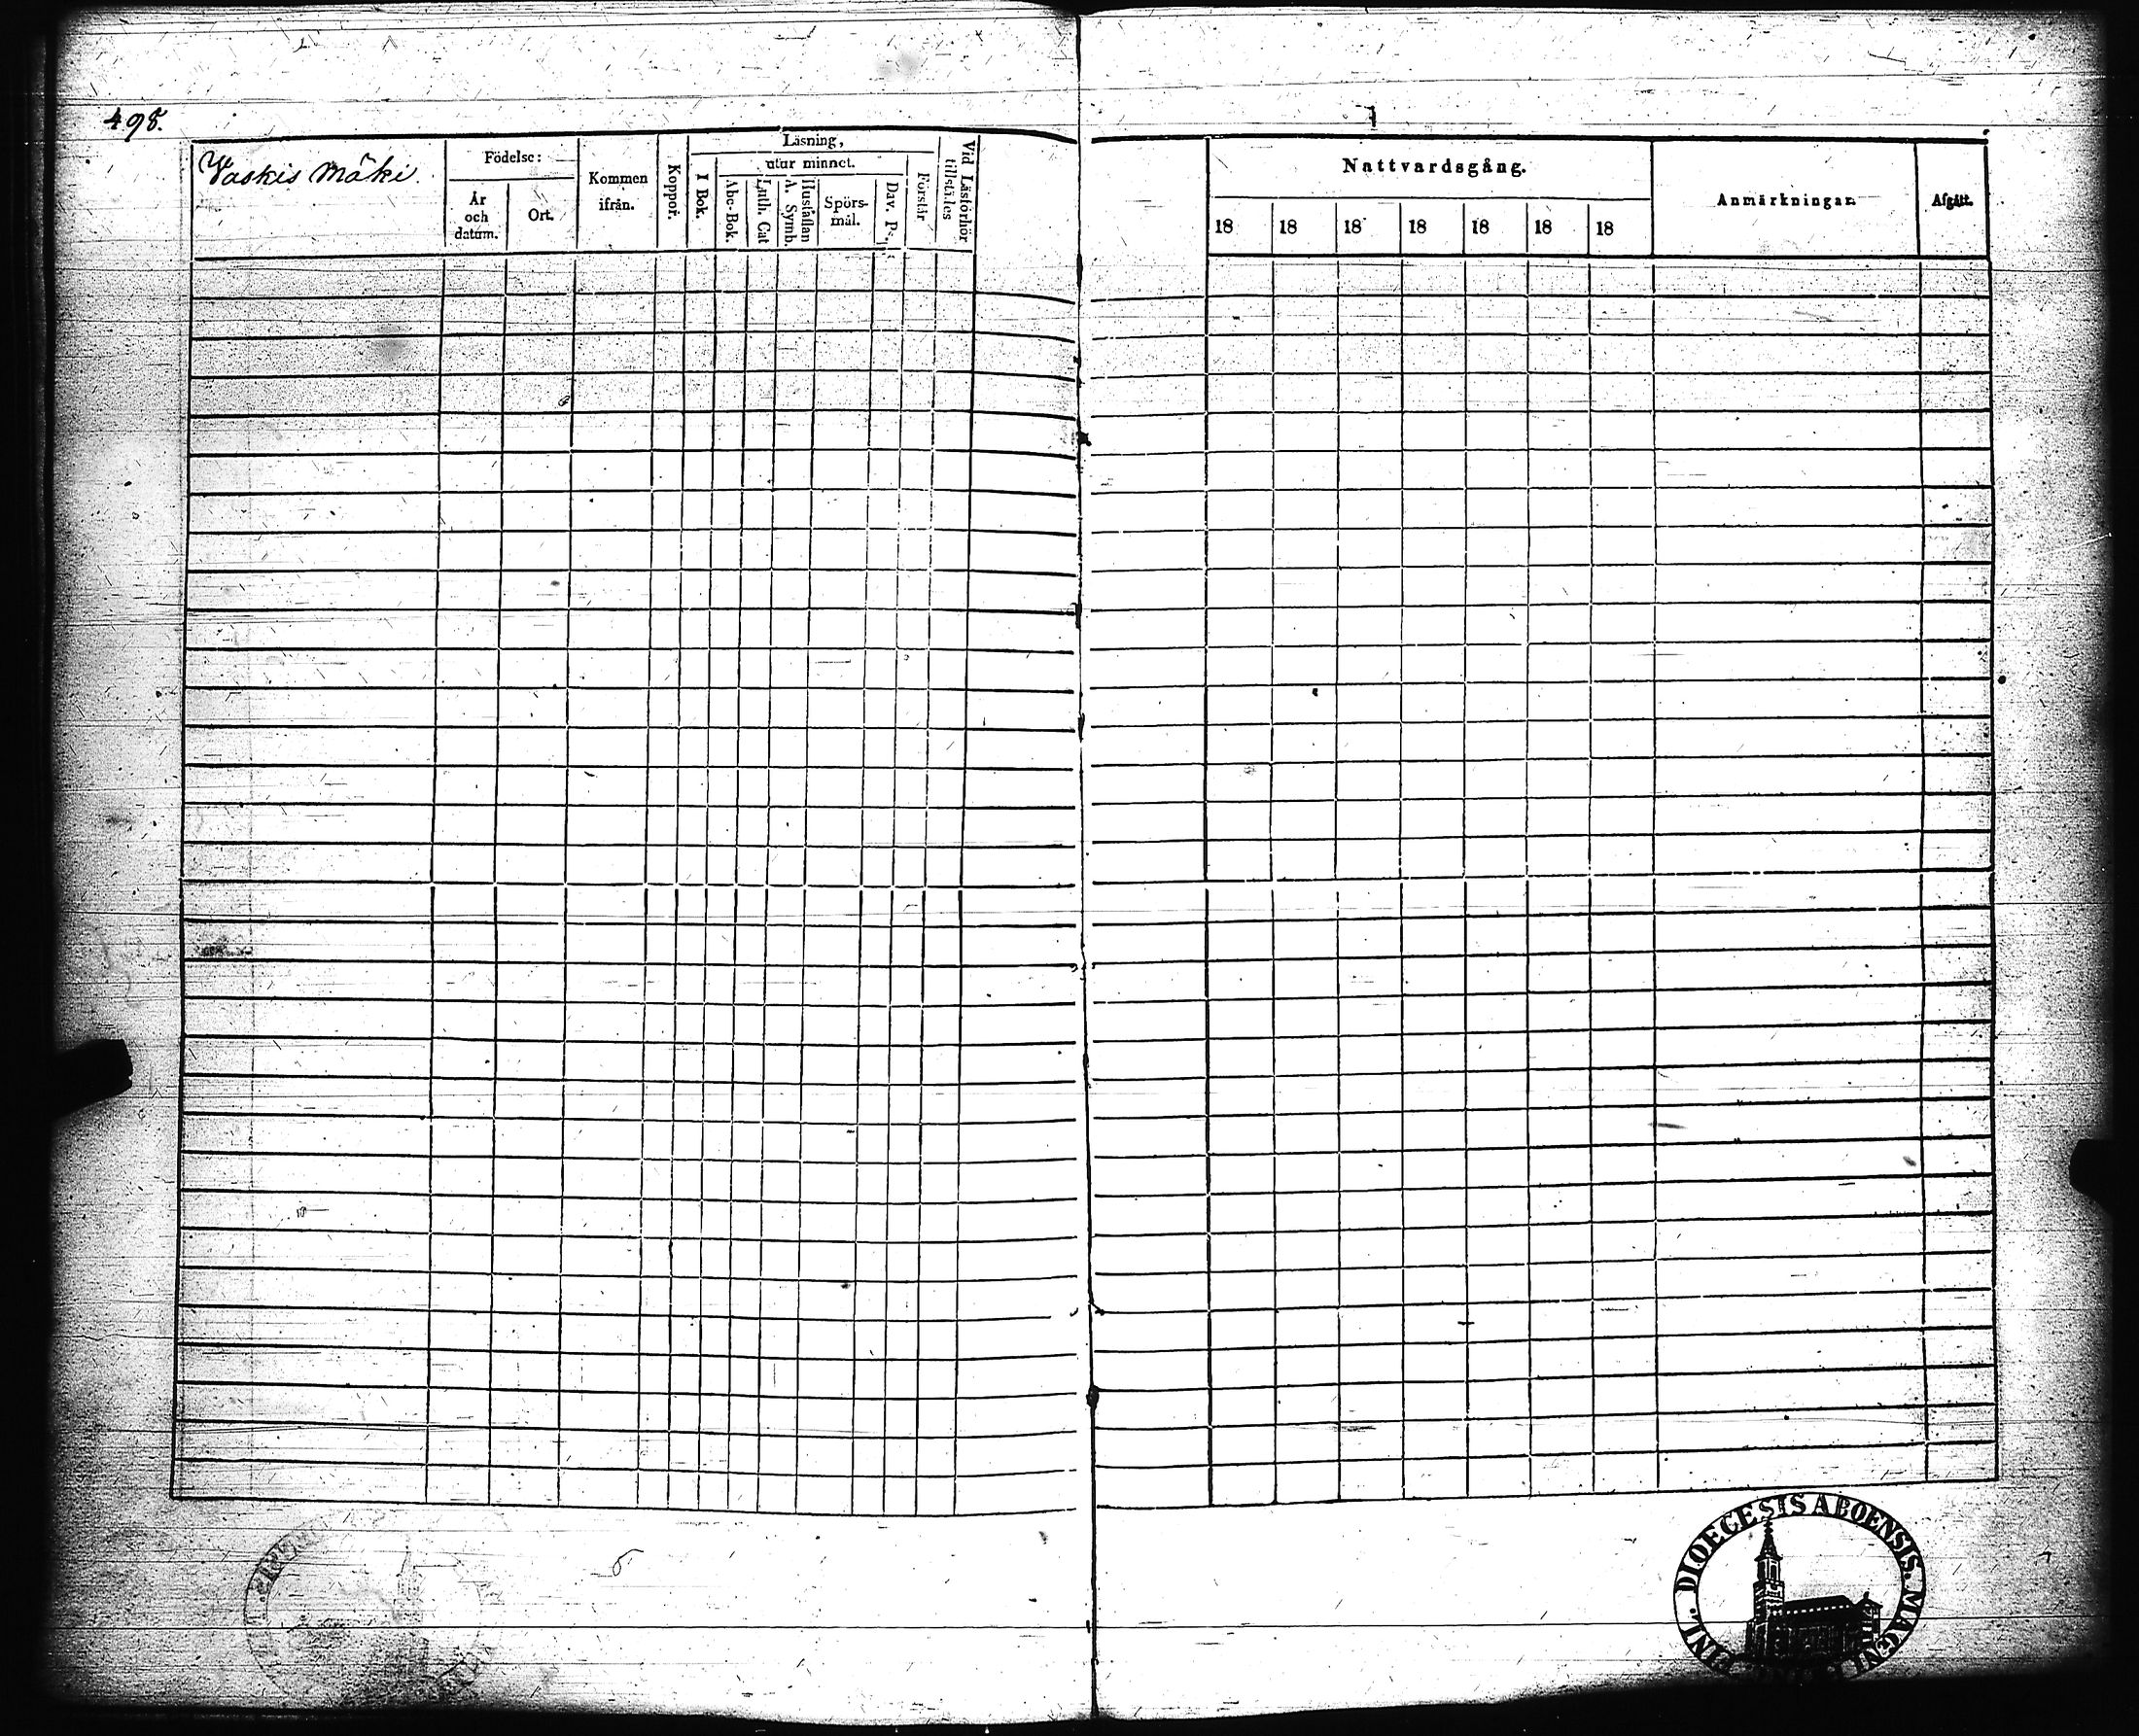 498.
Vaskis Mäki.
Födelse:
År
och
datum.
Ort.
Kommen
ifrån.
Koppor.
Läsning,
I Bok.
utur minnet.
Abc-Bok.
Luth. Cat
A. Symb.
Hustaflan
Spörs-
mål.
Dav. Ps.
Förstår
Vid Läsförhör
tillstädes
Nattvardsgång.
18 18 18 18 18 18 18
Anmärkningar.
Afgått.
DIOECESIS ABOENSIS. MAGNI
FINL.